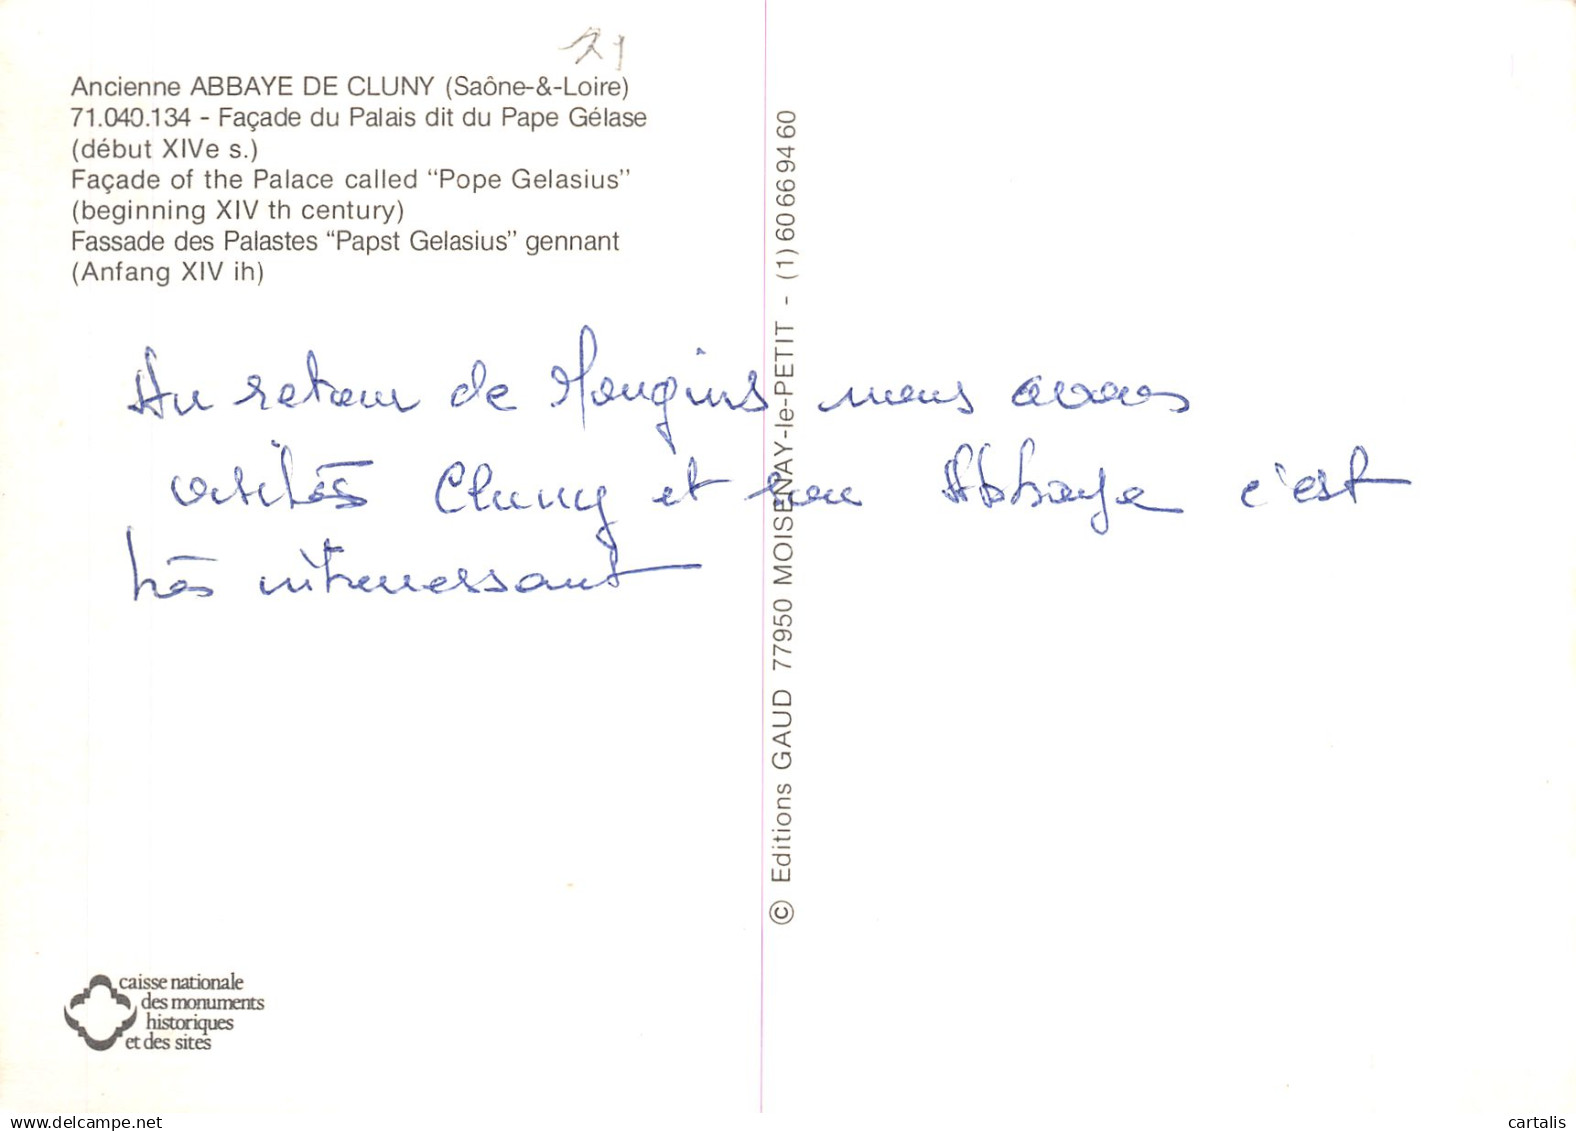 71
Ancienne ABBAYE DE CLUNY (Saône-&-Loire)
71.040.134 - Façade du Palais dit du Pape Gélase
(début XIVe s.)
Façade of the Palace called "Pope Gelasius"
(beginning XIV th century)
Fassade des Palastes "Papst Gelasius" gennant
(Anfang XIV ih)
Au retour de Mougins nous avons
visités Cluny et son Abbaye c'est
très intéressant
© Editions GAUD 77950 MOISENAY-le-PETIT - (1) 60 66 94 60
caisse nationale
des monuments
historiques
et des sites
www.delcampe.net
cartalis